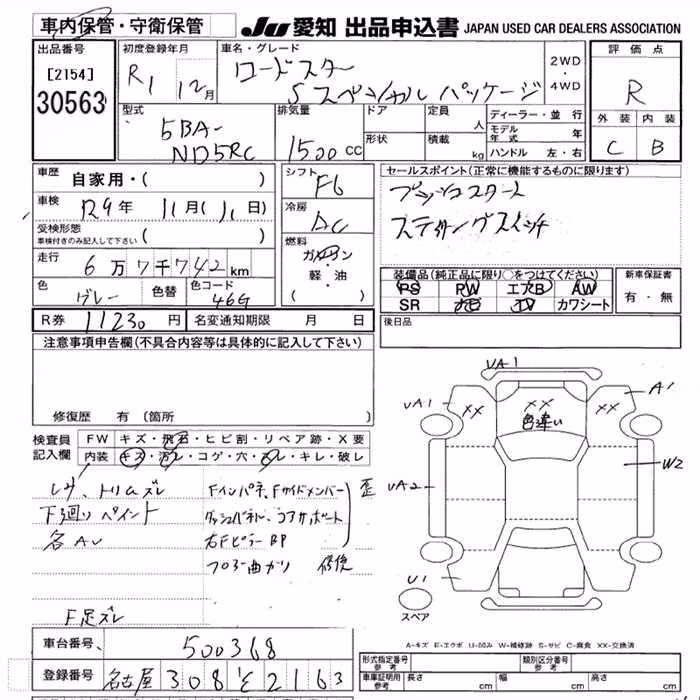 車内保管・守衛保管
JU 愛知 出品申込書 JAPAN USED CAR DEALERS ASSOCIATION
出品番号 初度登録年月 車名・グレード 評価点
[2154] R1 12月 ロードスター 2WD・4WD R
30563 Sスペシャル パッケージ
型式 排気量 ドア 定員 人 ディーラー・並行 外装 内装
5BA- モデル年式 年
ND5RC 1500cc 形状 積載 kg ハンドル 左・右 C B
車歴 自家用・( ) シフト F6 セールスポイント(正常に機能するものに限ります)
車検 R9年 11月(1日) 冷房 AC プッシュスタート
受検形態 ( )
車検付きのみ記入して下さい
ステアリングスイッチ
走行 6万7千742km 燃料 ガソリン・軽・油 ( )
装備品(純正品に限り○をつけてください) 新車保証書
PS PW エアB AW 有・無
SR ナビ TV カワシート
色 グレー 色替 色コード 46G
R券 11230円 名変通知期限 月 日 後日品
注意事項申告欄(不具合内容等は具体的に記入して下さい)
修復歴 有 (箇所
検査員記入欄 FW キズ・飛石・ヒビ割・リペア跡・X要
内装 キズ・汚レ・コゲ・穴・スレ・キレ・破レ
UA1
UA1 XX XX XX A1
色違い
W2
UA2
U1
スペア
シワ、トリムズレ Fインパネ、Fサイドメンバー 歪
下廻りペイント ダッシュパネル、コアサポート
各AU 右Fピラー BP
フロア曲ガリ 修復
F足ズレ
A-キズ E-エクボ U-凹み W-補修跡 S-サビ C-腐食 XX-交換済
車台番号 500368
登録番号 名古屋 308 そ 2163
形式指定番号 参考 類別区分番号 参考
車庫証明用 参考 長さ cm 幅 cm 高さ cm